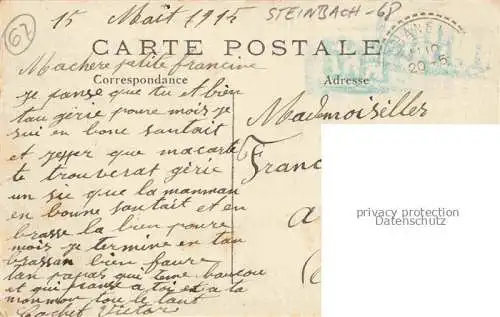 62
15 Maît 1915
STEINBACH-68
CARTE POSTALE
Machere petite francine
Correspondance
Adresse
je panse que tu et bien
tau gérie poure mois je
sui en bone santait
et jesper que macarte
te trouverat gérie
un sie que la manman
en bonne santait et en
brasse la bien poure
mois je termine en tan
brassan bien faure
tan papas qui teme baucou
et qui panse a toi et a ta
manmon tou le tant
Cachet Victor
Mademoiselle
Franc
a
privacy protection
Datenschutz